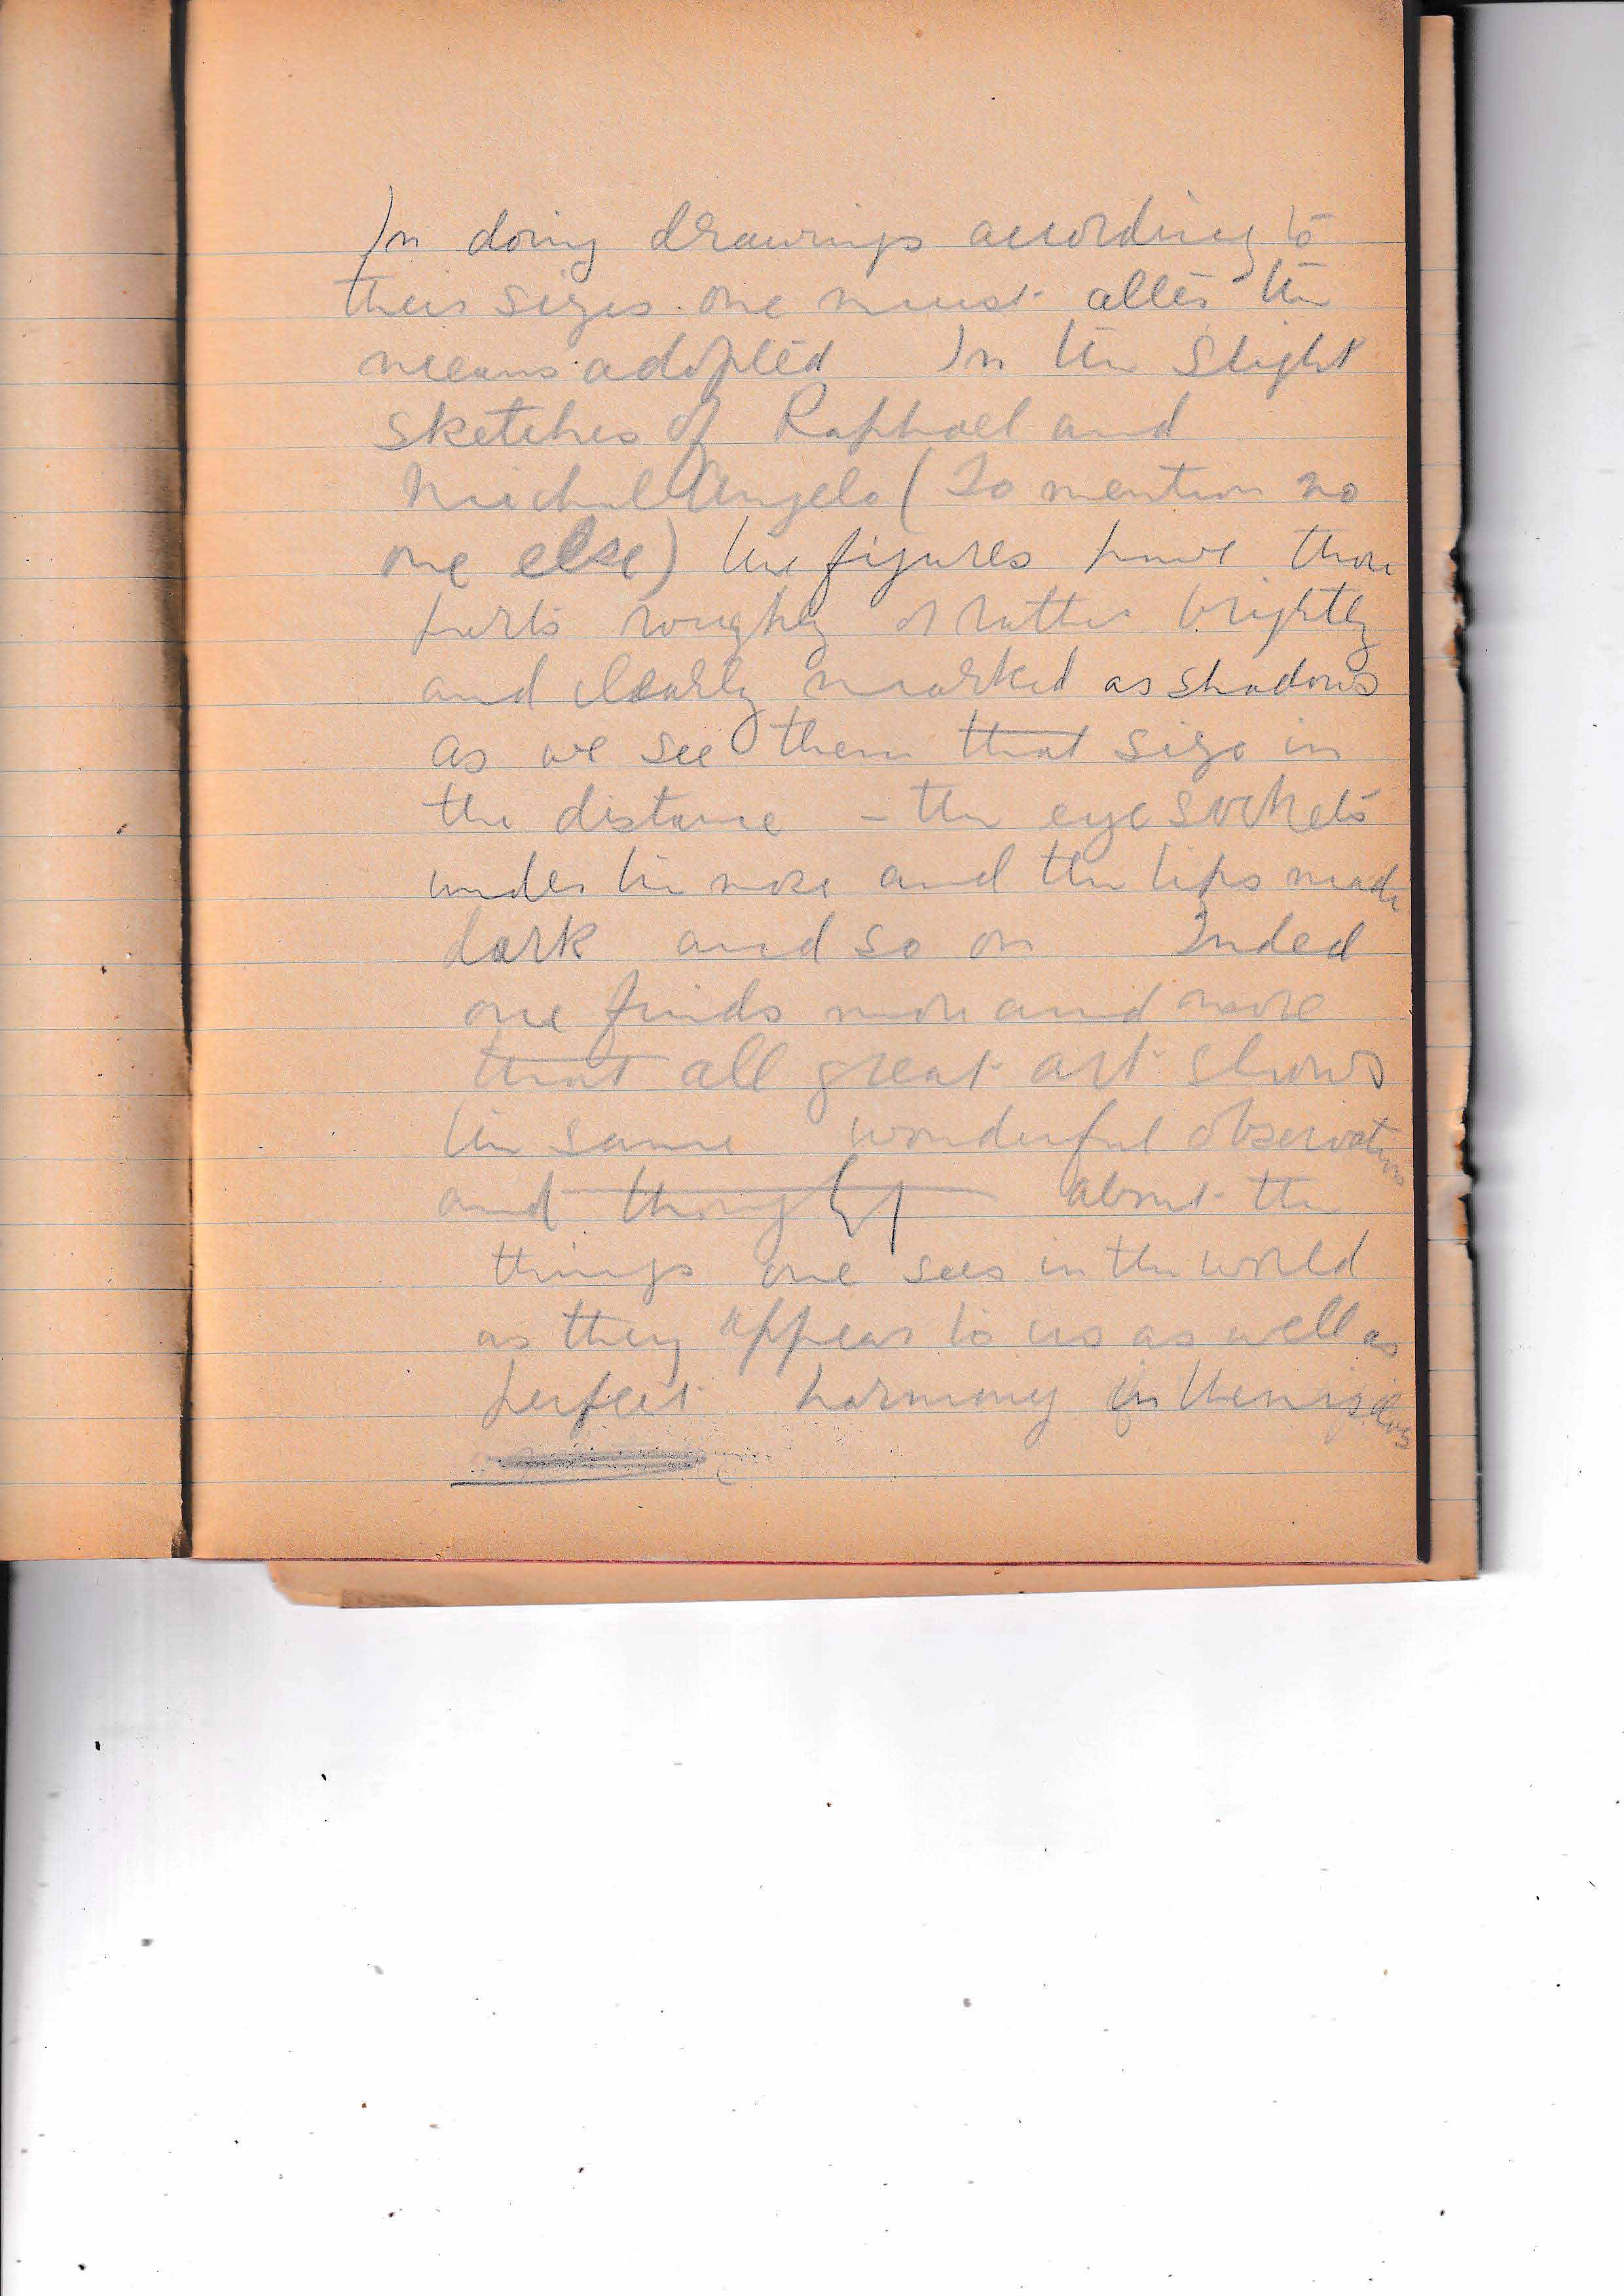 In doing drawings according to
their sizes one must alter the
means adopted In the slight
sketches of Raphael and
Michael Angelo (To mention no
one else) the figures have those
parts roughly or rather brightly
and clearly marked as shadows
as we see them that size in
the distance - the eye sockets
under the nose and the lips made
dark and so on Inded
one finds more and more
that all great art shows
the same wonderful observation
and thought about the
things one sees in the world
as they appear to us as well as
perfect harmony in